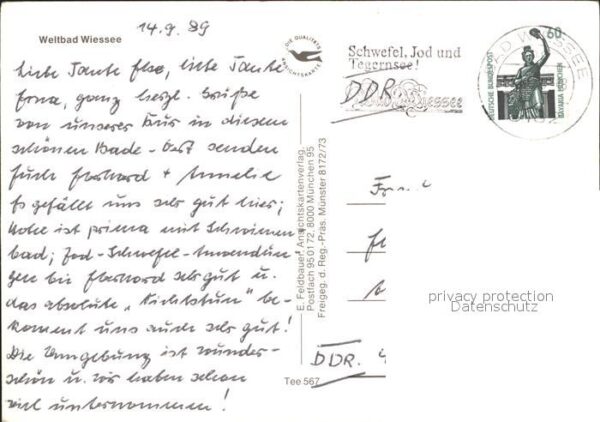 14.9.89
Weltbad Wiessee
Liebe Tante Else, liebe Tante
Erna, ganz herzl. Grüße
von unserer Kur in diesem
schönen Bade-Ort senden
Euch Eberhard + Annelie
Es gefällt uns sehr gut hier;
Hotel ist prima mit Schwimm
bad; Jod-Schwefel-Anwendun
gen bei Eberhard sehr gut u.
das absolute "Nichtstun" be-
kommt uns auch sehr gut!
Die Umgebung ist wunder-
schön u. wir haben schon
viel unternommen!
DIE QUALITÄTS
ANSICHTSKARTE
E. Feldbauer, Ansichtskartenverlag,
Postfach 950172, 8000 München 95
Freigeg. d. Reg.-Präs. Münster 8172/73
Tee 567
Schwefel, Jod und
Tegernsee!
Bad Wiessee
DDR
BAD WIESSEE
60
DEUTSCHE BUNDESPOST
BAVARIA MÜNCHEN
DDR.
privacy protection
Datenschutz